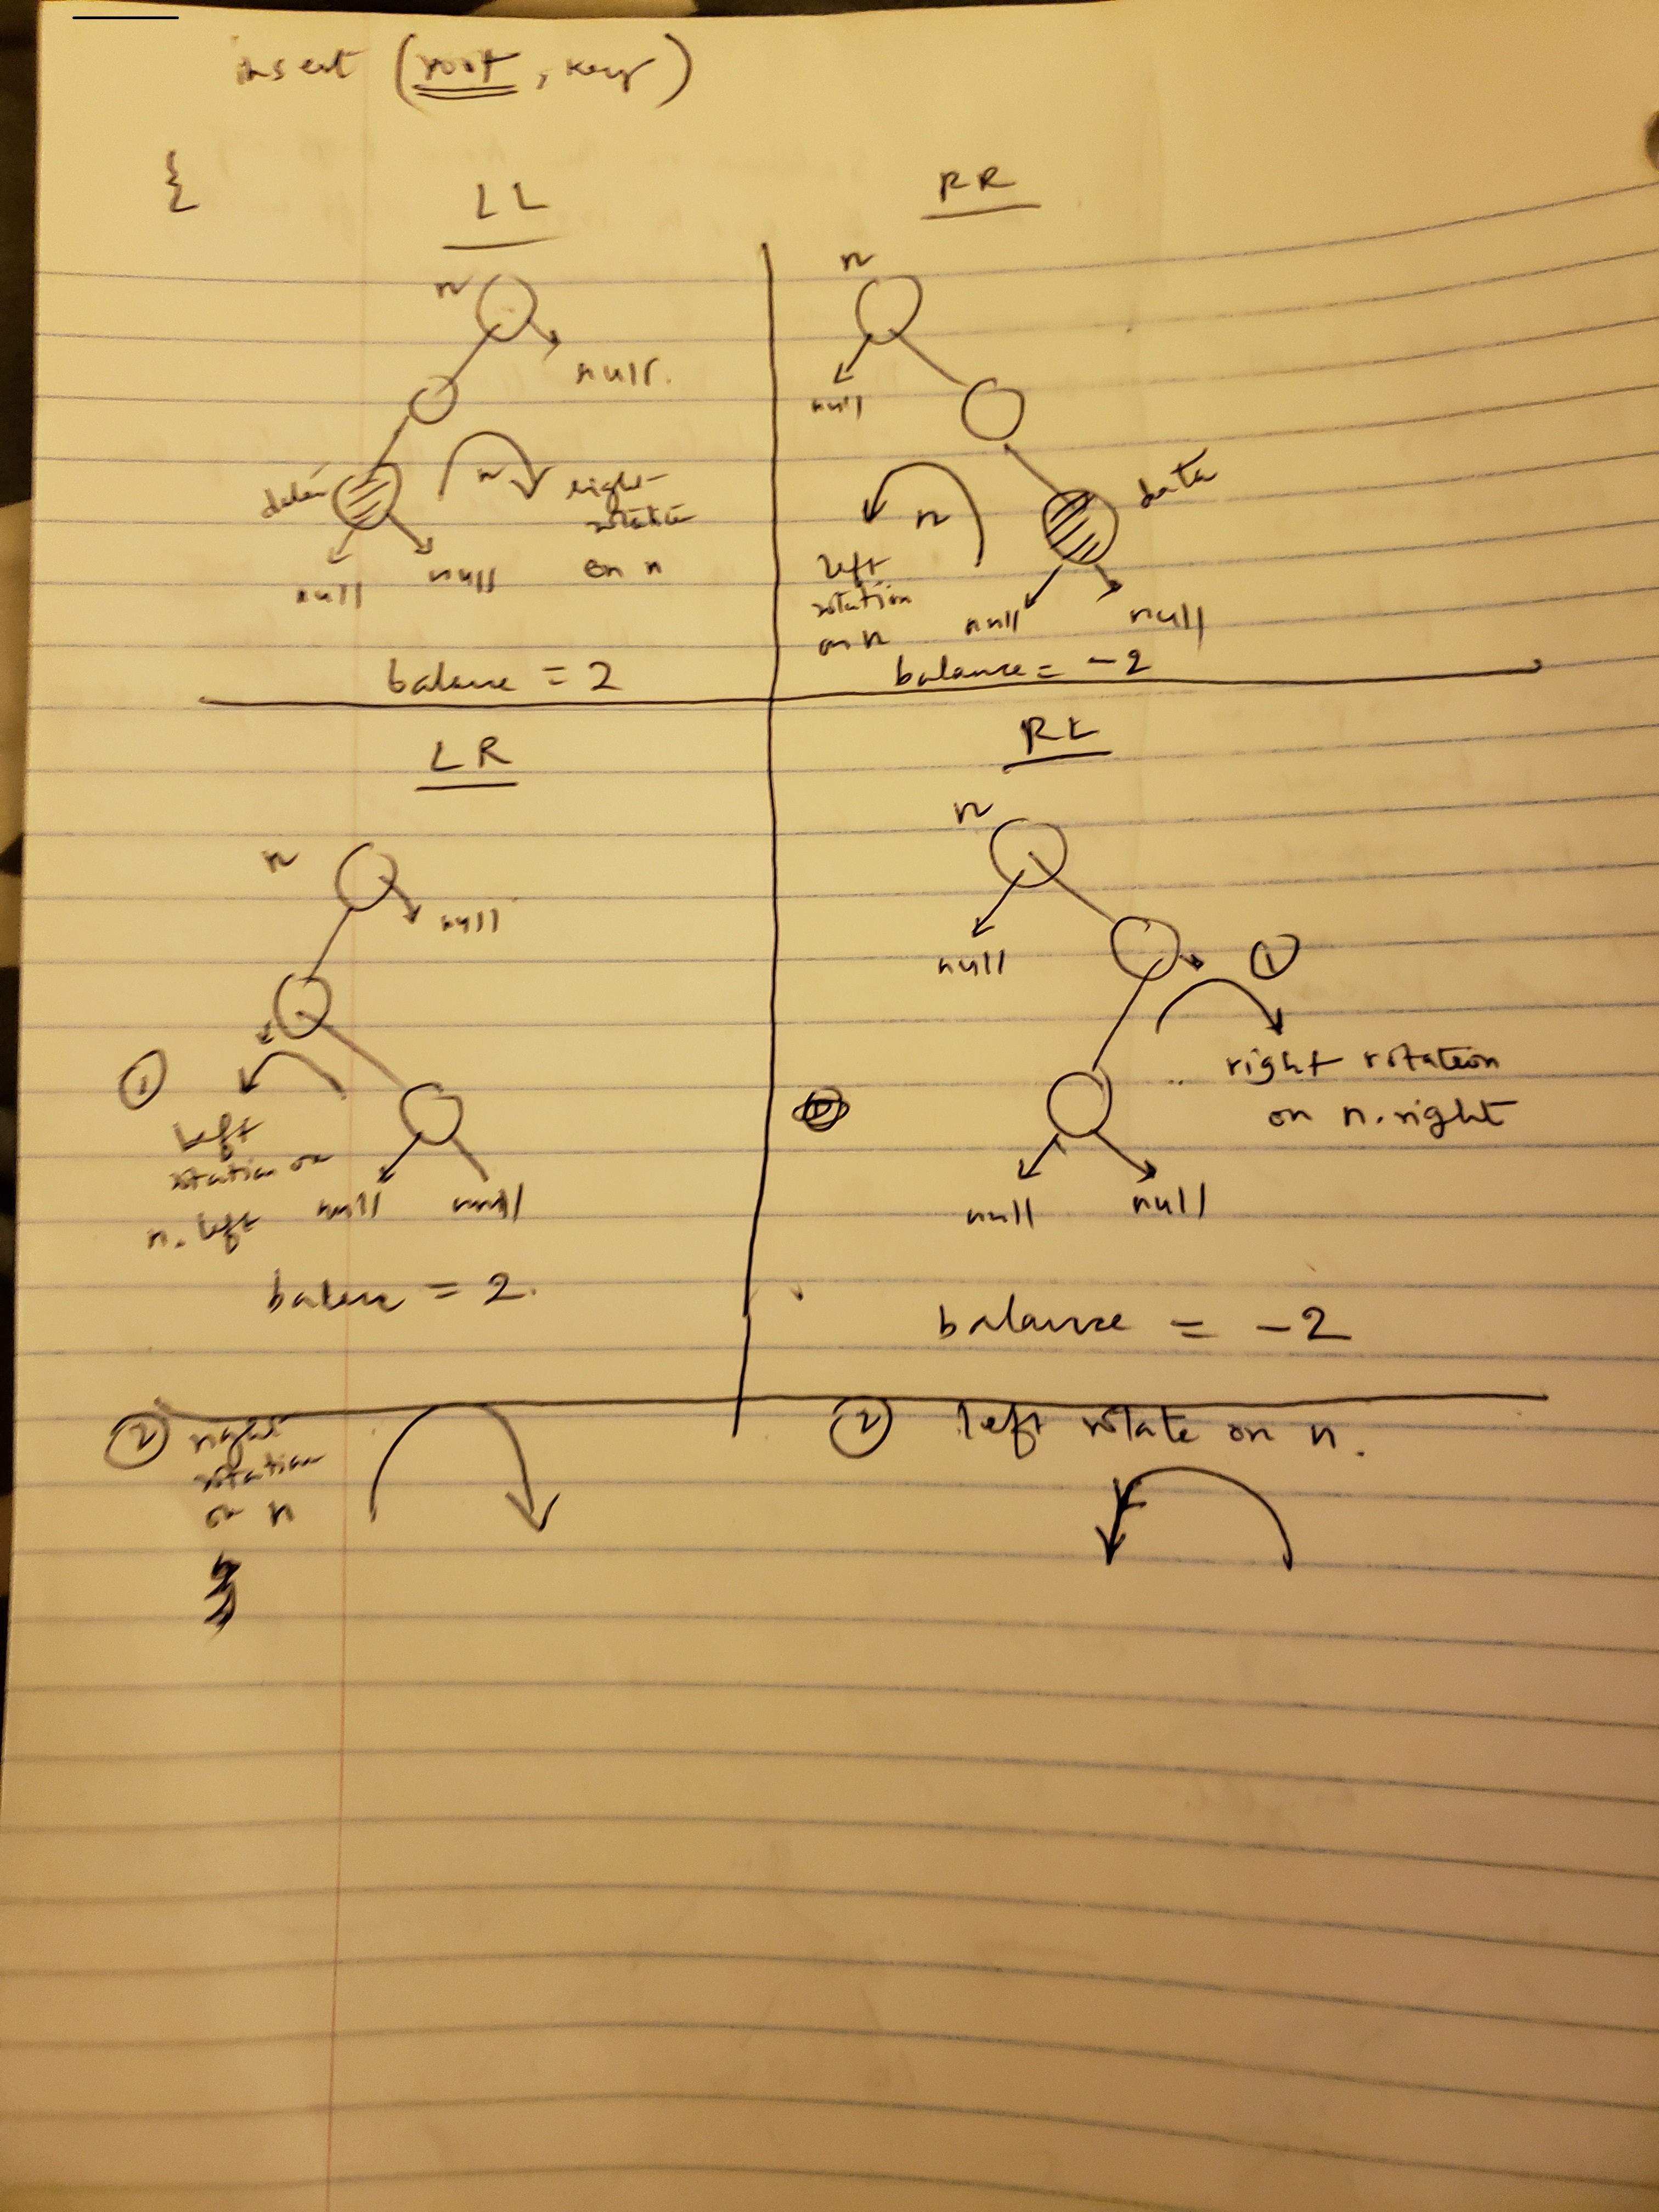 insert (root, key)
{
LL
n
null.
data
n
right
rotation
on n
null
null
balance = 2
RR
n
null
data
n
left
rotation
on n
null
null
balance = -2
LR
n
null
①
left
rotation on
n. left
null
null
balance = 2.
RL
n
null
①
right rotation
on n. right
null
null
balance = -2
② right
rotation
on n
② left rotate on n.